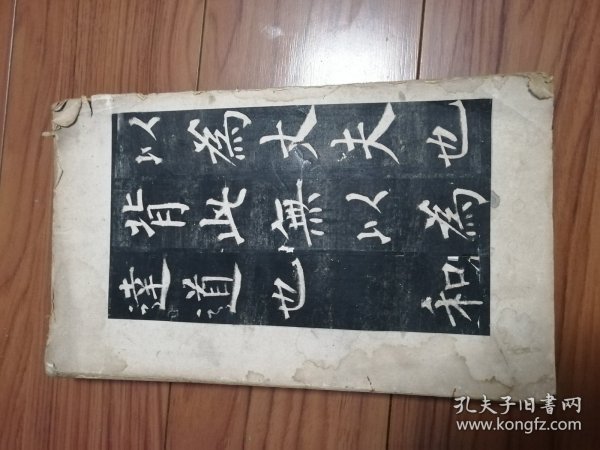 以為丈夫也
背此無以為
達道也和
孔夫子旧書网
www.kongfz.com